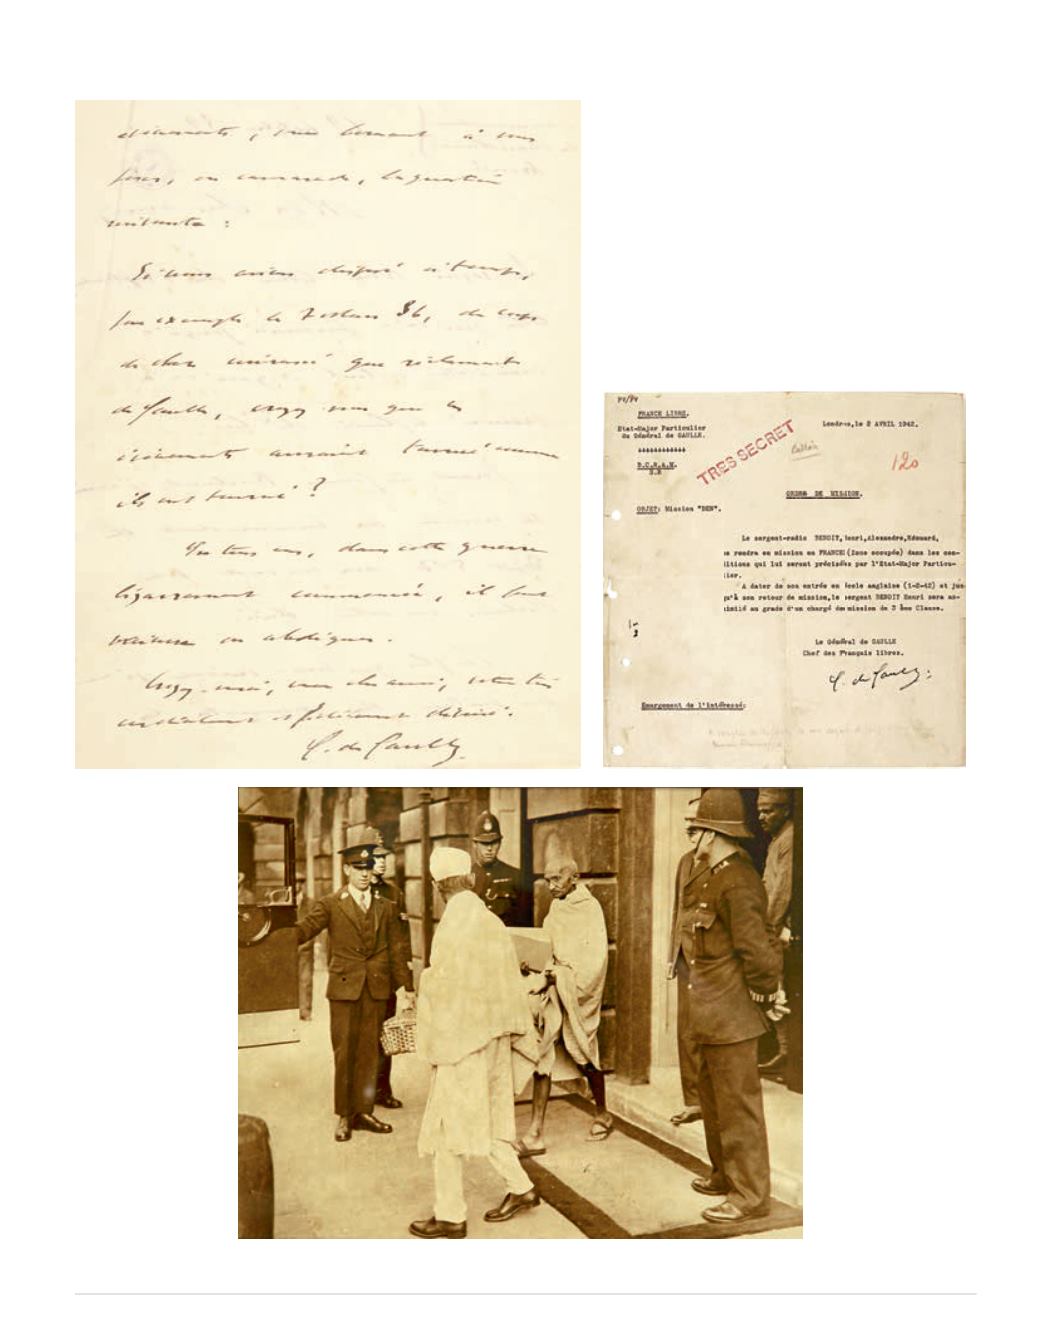 à vous
poser, en camarade, la question
suivante :
Si nous avions disposé à temps,
par exemple le 7 mars 36, du corps
de chars cuirassé que réclamait
de Gaulle, croyez vous que les
événements auraient tourné comme
ils ont tourné ?
En tous cas, dans cette guerre
bizarrement commencée, il faut
vaincre ou abdiquer.
Croyez-moi, mon cher ami, votre très
cordialement et fidèlement dévoué.
C. de Gaulle
FRANCE LIBRE.
Etat-Major Particulier
du Général de GAULLE.
B.C.R.A.M.
S.R
TRES SECRET
Londres, le 2 AVRIL 1942.
120
ORDRE DE MISSION.
OBJET: Mission "BEN".
Le sergent-radio BENOIT, Henri, Alexandre, Edouard,
se rendra en mission en FRANCE (Zone occupée) dans les con-
ditions qui lui seront précisées par l'Etat-Major Particu-
lier.
A dater de son entrée en école anglaise (1-2-42) et jus
qu'à son retour de mission, le sergent BENOIT Henri sera as-
similé au grade d'un chargé de mission de 3 ème Classe.
Le Général de GAULLE
Chef des Français libres.
C. de Gaulle
Emargement de l'intéressé: